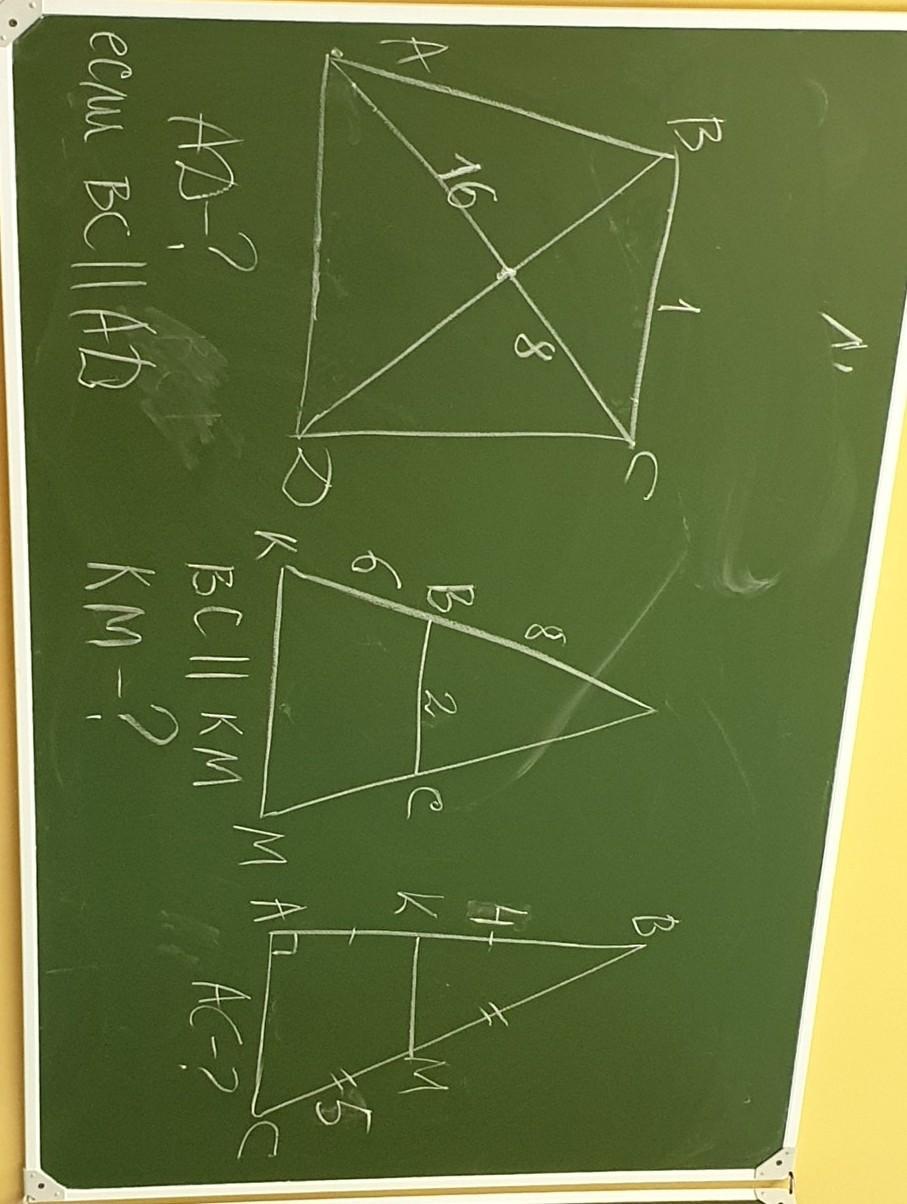 1.
A
B
1
16
8
C
D
AD-?
если BC || AD
K
6
B
8
2
C
M
BC || KM
KM-?
B
4
K
A
M
5
C
AC-?